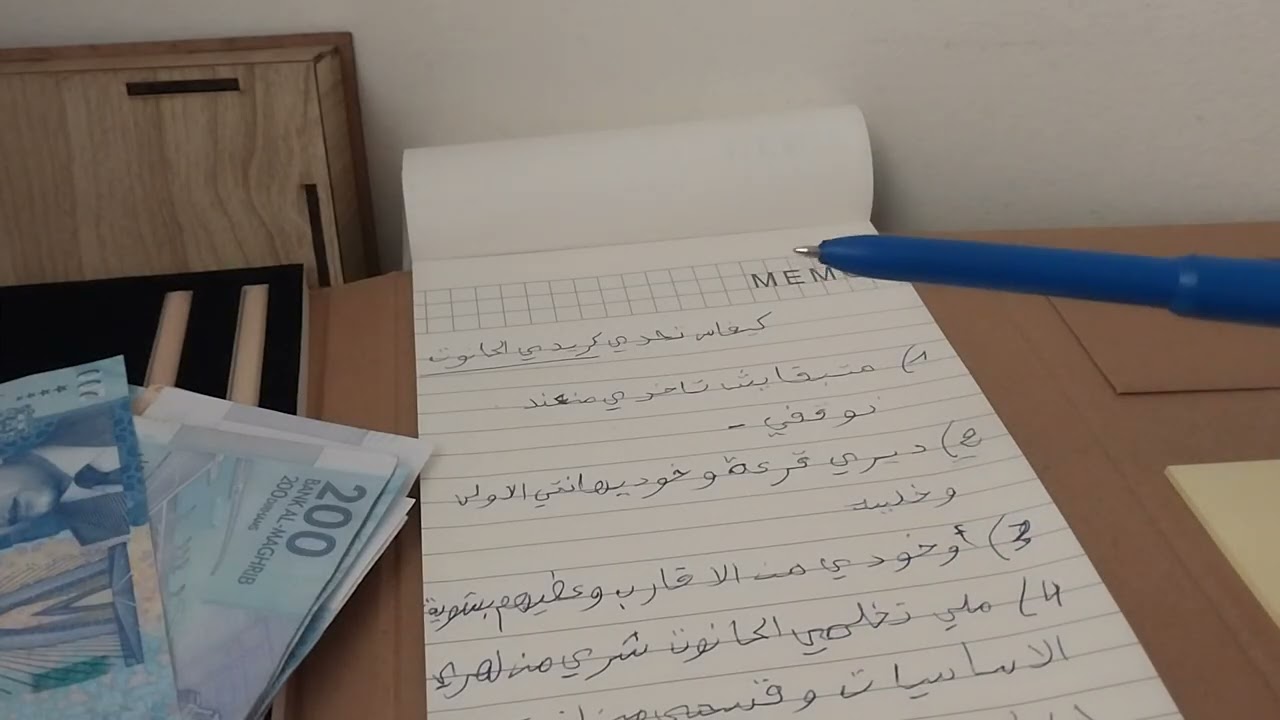 MEM
كيفاش نحدي كريدي الحانوت
1) متبقايش تاخدي من عند
توقفي -
2) ديري قرعة وخوديها نتي الاولى
وخلصيه
3) أوخودي من الاقارب وعطيهم بشوية
4) ملي تخلصي الحانوت شري منو لهري
الاساسيات وقسمي
200
BANK AL-MAGHRIB
200 DIRHAMS